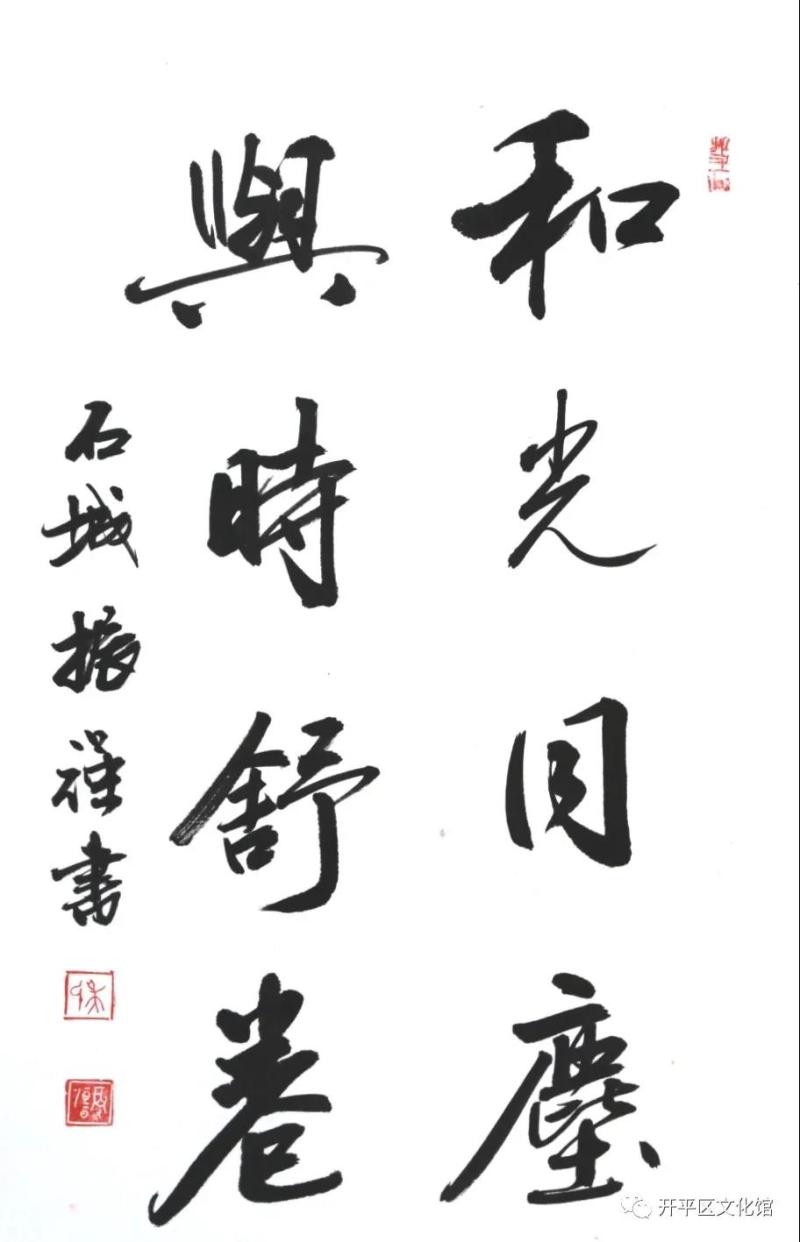 和光同塵
與時舒卷
石城振強書
开平区文化馆